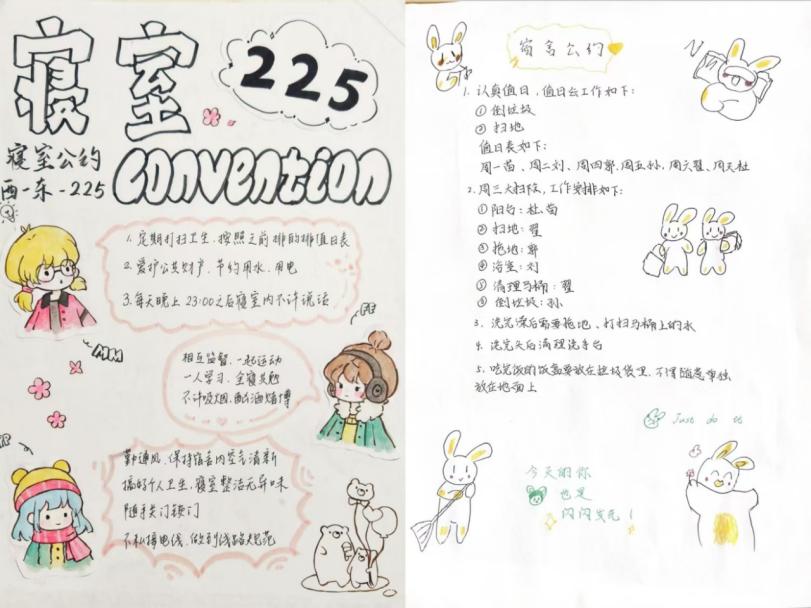 寝室
225
寝室公约
西一东-225
convention
1. 定期打扫卫生，按照之前排的排值日表
2. 爱护公共财产、节约用水、用电
3. 每天晚上 23:00之后寝室内不许说话
相互监督、一起运动
一人学习、全寝共勉
不许吸烟、酗酒赌博
勤通风、保持宿舍内空气清新
搞好个人卫生，寝室整洁无异味
随手关门锁门
不私接电线、做到线路规范
宿舍公约
1. 认真值日，值日生工作如下：
① 倒垃圾
② 扫地
值日表如下：
周一苗、周二刘、周四郭，周五孙，周六翟、周天杜
2. 周三大扫除，工作安排如下：
① 阳台：杜、苗
② 扫地：翟
③ 拖地：郭
④ 浴室：刘
⑤ 清理马桶：翟
⑥ 倒垃圾：孙
3. 洗完澡后需要拖地、打扫马桶上的水
4. 洗完头后清理洗手台
5. 吃完饭的饭盒要放在垃圾袋里，不得随意单独
放在地面上
Just do it
今天的你
也是
闪闪发光！